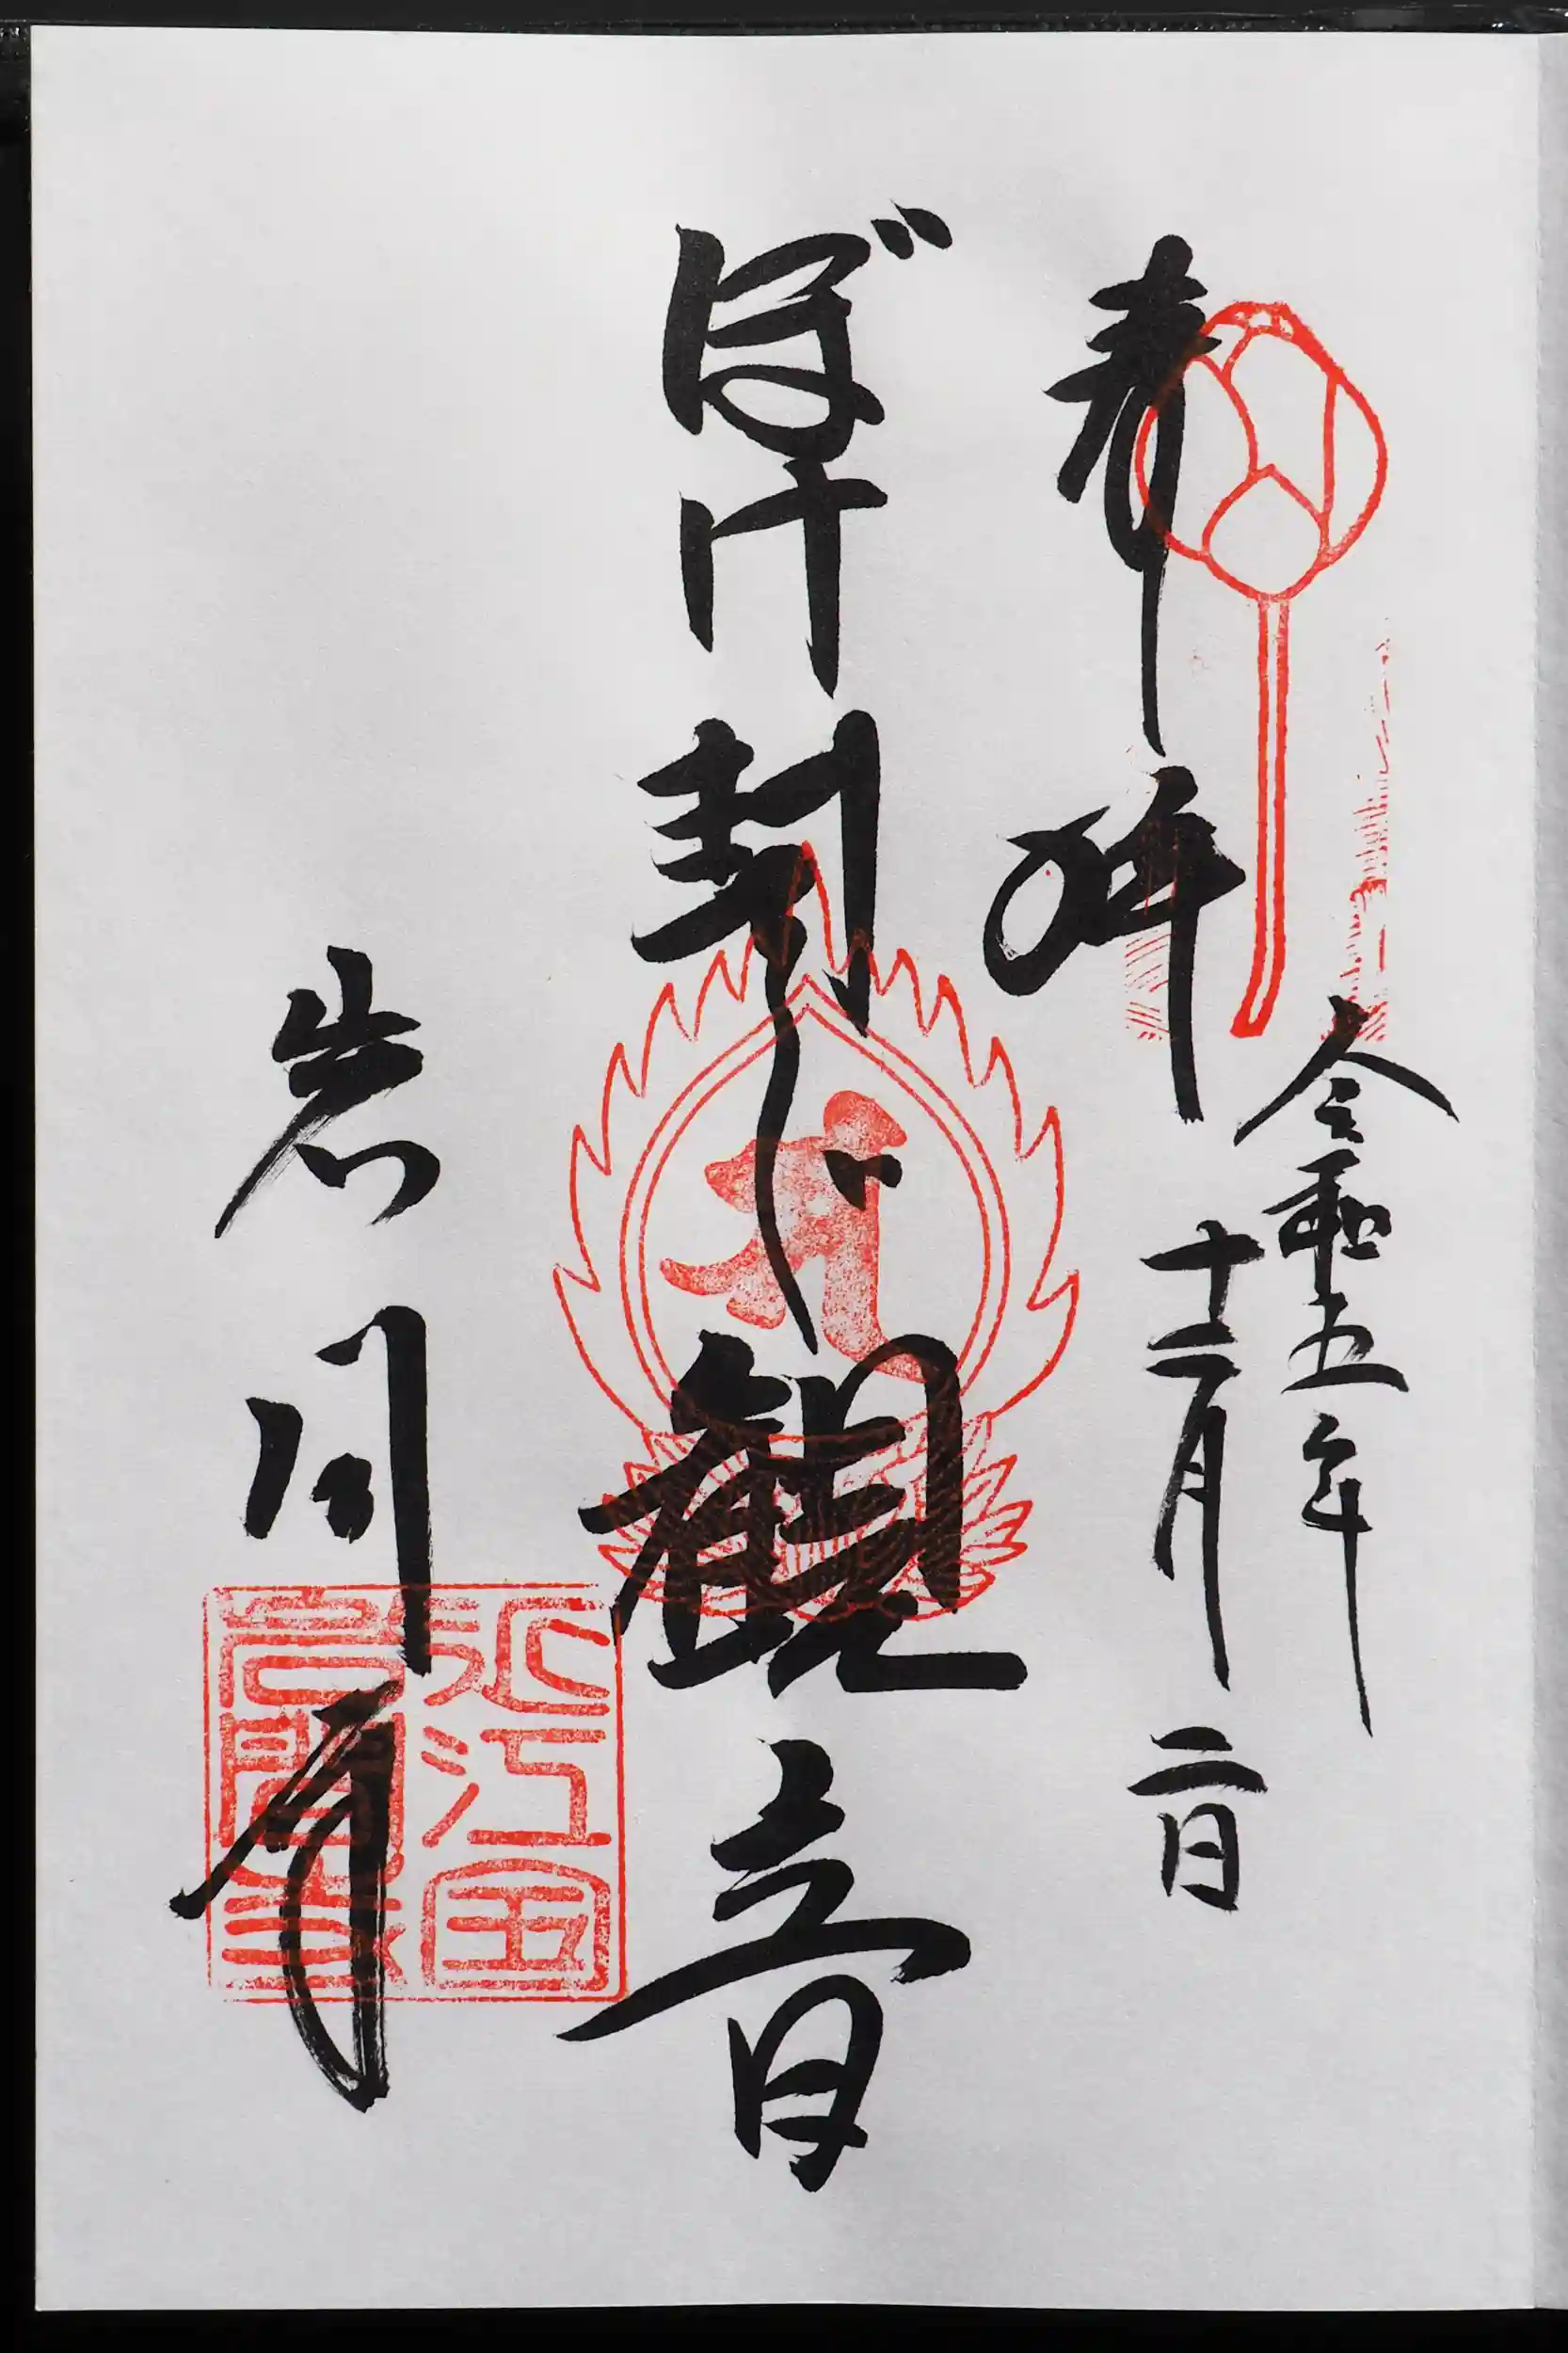 令和五年
十二月二日
奉拝
ぼけ封じ観音
岩間寺
近江国
岩間寺